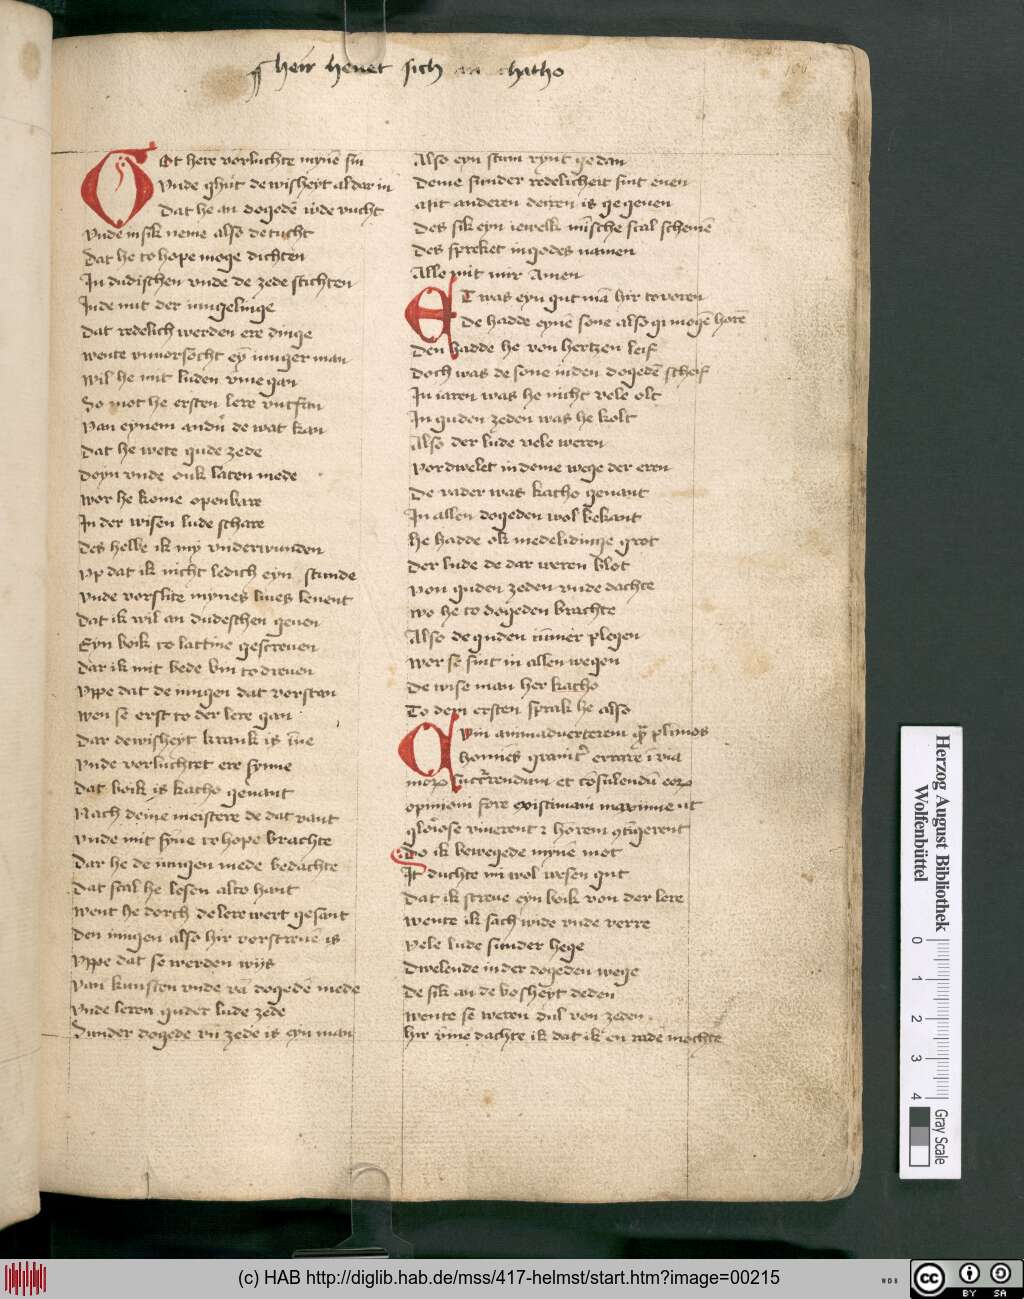 heir heuet sich an chatho
Got here vorluchte myne sin
Unde ghut de wisheyt al dar in
Dat he an dogede wde vucht
Unde in sik neme also de tucht
Dat he to hope moge dichten
In dudischen unde de zede stichten
Inde mit der iungelinge
Dat redelich werden ere dinge
wente vnuorsocht ey iunger man
wil he mit luden vme gan
So mot he ersten lere vntfan
van eynem andn de wat kan
Dat he wete gude zede
Doyn vnde ouk laten mede
wor he kome openbare
In der wisen lude schare
Des hebbe ik my vnderwunden
vp dat ik nicht ledich eyn stunde
vnde vorslite mynes liues leuent
Dat ik wil an dudeschen geuen
Eyn boik to lattine gescreuen
Dar ik mit bede bin to dreuen
vppe dat de iungen dat vorstan
wen se erst to der lere gan
Dar de wisheyt krank is ine
vnde vorluchtet ere synne
Dat boik is katho genant
Nach deme meistere de dat vant
vnde mit syne to hope brachte
Dar he de iungen mede bedachte
Dat scal he lesen alto hant
went he dorch de lere wert gesant
Den iungen also hir vorscreue is
vppe dat se werden wys
van kunsten vnde va dogede mede
vnde leren guder lude zede
Sunder dogede vn zede is eyn man
Also eyn stum rynt gedan
Deme sunder redelicheit sint euen
Mit anderen deiren is gegeuen
Des sik eyn iewelk mische scal scheme
Des spreket in godes namen
Alle mit mir Amen
ET was eyn gut ma hir tovoren
De hadde eyne sone also gi moge hore
Den hadde he von hertzen leif
Doch was de sone in den dogede scheif
In iaren was he nicht vele olt
In guden zeden was he kolt
Also der lude vele weren
vordwelet in deme wege der eren
De vader was katho genant
In allen dogeden wol bekant
he hadde ok medelidinge grot
Der lude de dar weren blot
von guden zeden vnde dachte
wo he to dogeden brachte
Also de guden iumer plegen
wor se sint in allen wegen
De wise man her katho
To dem ersten sprak he also
Cvm animaduerterem qp plimos
homines grauit errare i via
moz succrrendum et cosulendu eoz
opinioni fore existimaui maxime ut
gloiose viuerent z horem gtigerent
Do ik bewegede myne mot
It duchte mi wol wesen gut
Dat ik screue eyn boik von der lere
wente ik sach wide vnde verre
vele lude sunder hege
Dwelende in der dogeden wege
De sik an de bosheyt deden
wente se weren dul von zeden
hir vme dachte ik dat ik en rade mochte
Herzog August Bibliothek
Wolfenbüttel
0 1 2 3 4
Gray Scale
(c) HAB http://diglib.hab.de/mss/417-helmst/start.htm?image=00215
WDB
cc BY SA